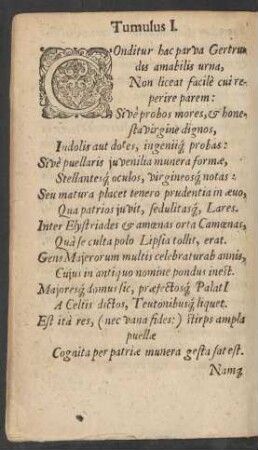 Tumulus I.
Conditur hac parva Gertru-
dis amabilis urna,
Non liceat facilè cui re-
perire parem:
Sivè probos mores, & hone-
sta virgine dignos,
Indolis aut dotes, ingeniiq́; probas:
Sivè puellaris juvenilia munera formæ,
Stellantesq́; oculos, virgineosq́; notas:
Seu matura placet tenero prudentia in ævo,
Qua patrios juvit, sedulitasq́;, Lares.
Inter Elystriades & amœnas orta Camœnas,
Quà se culta polo Lipsia tollit, erat.
Gens Majorum multis celebraturab annis,
Cujus in antiquo nomine pondus inest.
Majoresq́; domus sic, præfectosq́; Palatî
A Celtis dictos, Teutonibusq́; liquet.
Est ità res, (nec vana fides:) stirps ampla
puellæ
Cognita per patriæ munera gesta sat est.
Namq́;